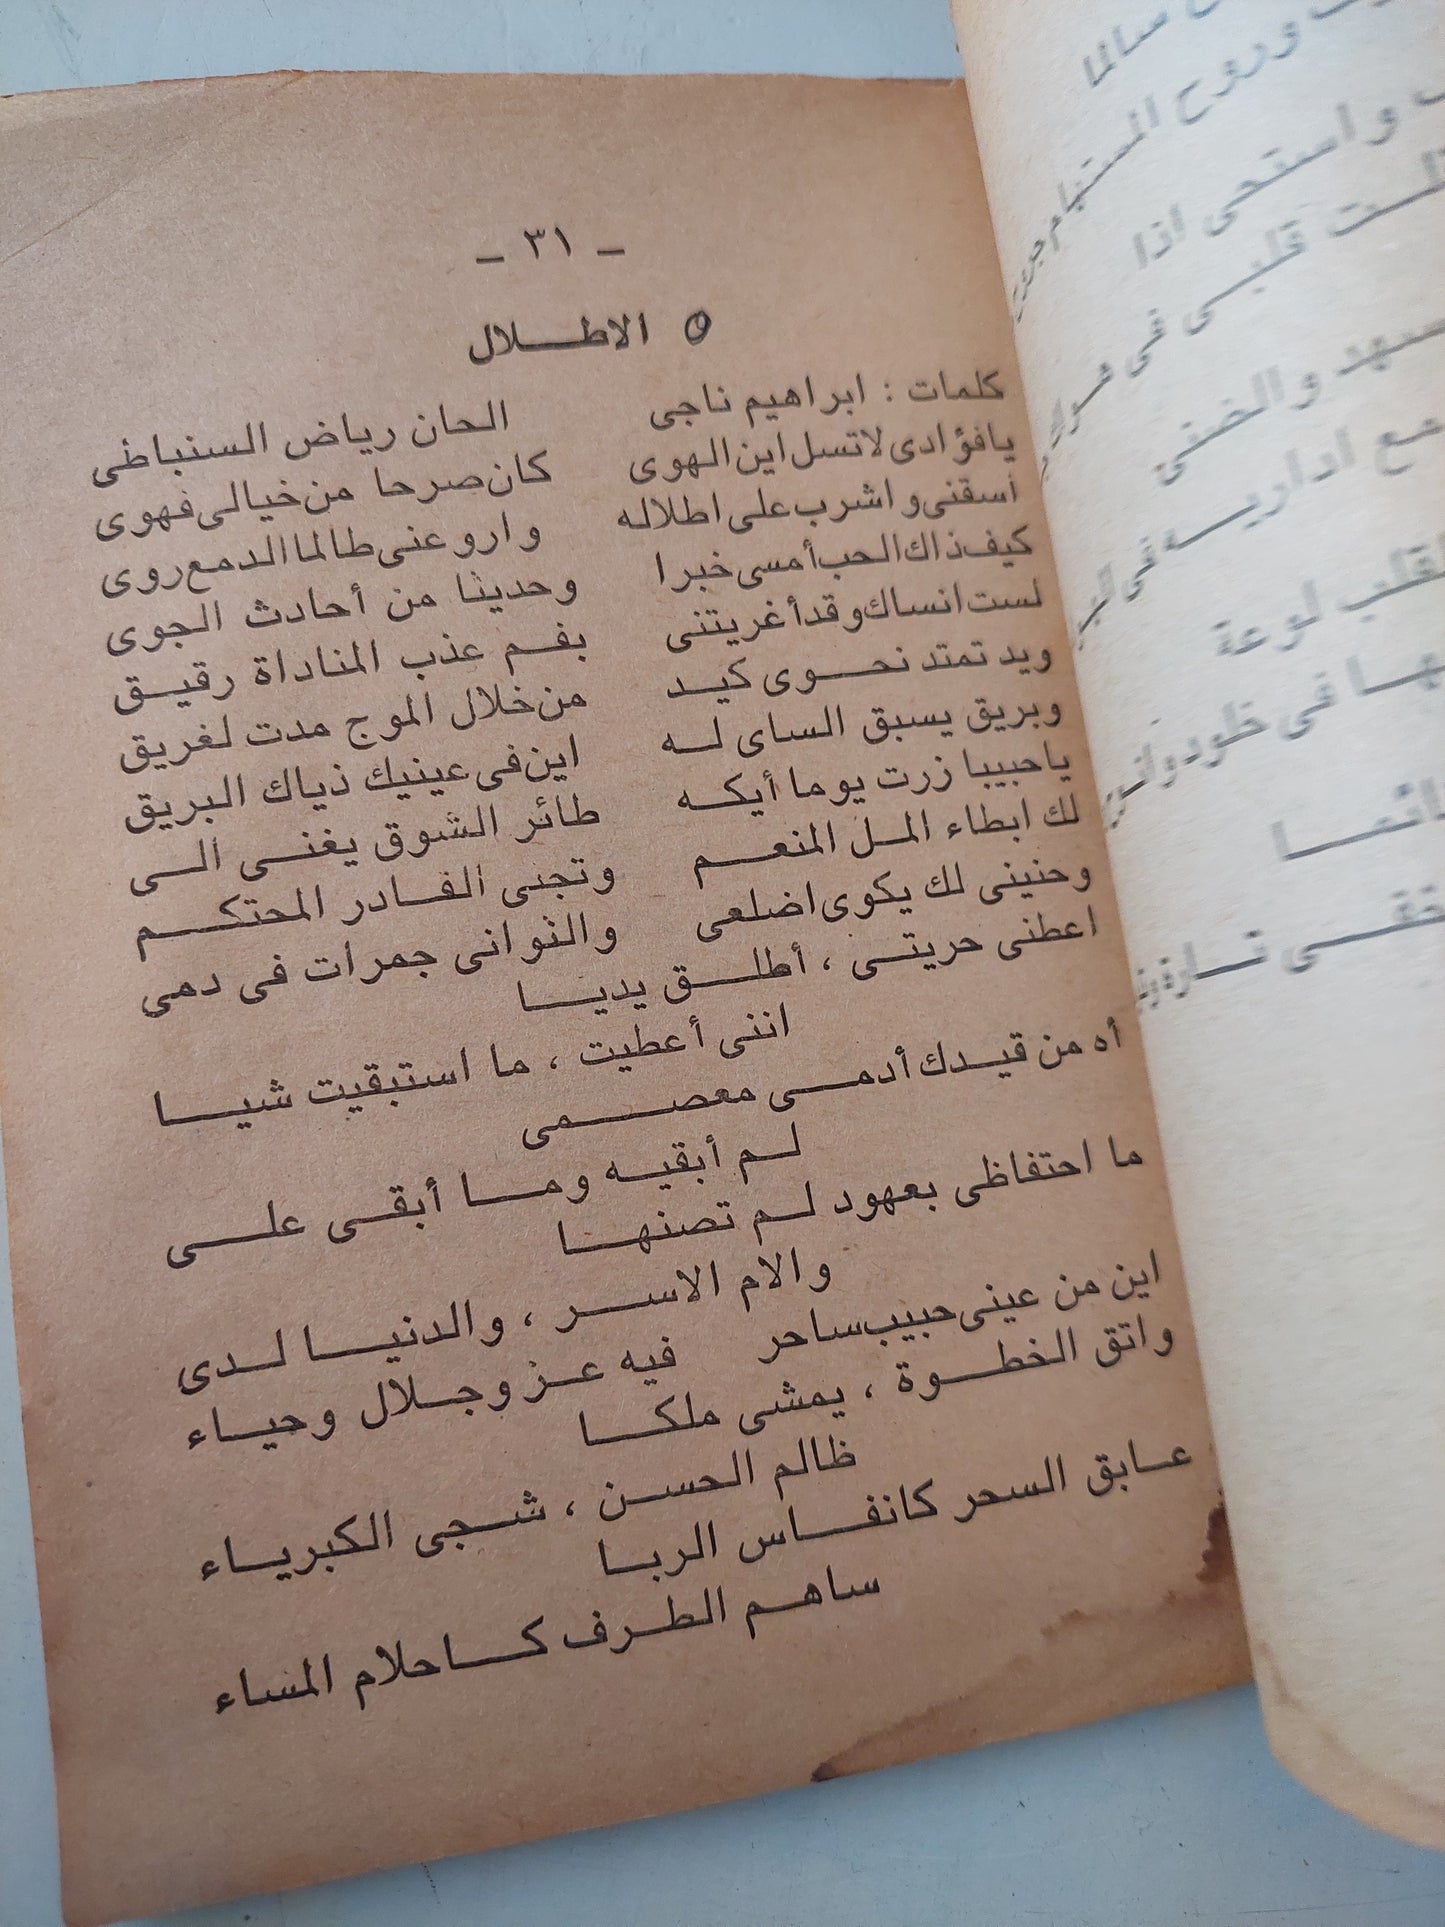 - ٣١ -
الاطلال
كلمات : ابراهيم ناجى الحان رياض السنباطى
يافؤادى لاتسل اين الهوى كان صرحا من خيالى فهوى
أسقنى واشرب على اطلاله وارو عنى طالما الدمع روى
كيف ذاك الحب أمسى خبرا وحديثا من أحادث الجوى
لست انساك وقد أغريتنى بفم عذب المناداة رقيق
ويد تمتد نحوى كيد من خلال الموج مدت لغريق
وبريق يسبق الساى له اين فى عينيك ذياك البريق
ياحبيبا زرت يوما أيكه طائر الشوق يغنى الى
لك ابطاء المل المنعم وتجنى القادر المحتكم
وحنينى لك يكوى اضلعى والثوانى جمرات فى دمى
اعطنى حريتى ، أطلق يديا
اننى أعطيت ، ما استبقيت شيا
أه من قيدك أدمى معصمى
لم أبقيه وما أبقى على
ما احتفاظى بعهود لم تصنها
والام الاسر ، والدنيا لدى
اين من عينى حبيب ساحر فيه عز وجلال وحياء
واتق الخطوة ، يمشى ملكا
ظالم الحسن ، شجى الكبرياء
عابق السحر كانفاس الربا
ساهم الطرف كاحلام المساء
سالما
وروح المستهام
واستحى اذا
قلبى فى هواك
والضنى
اداريه فى
لقلب لوعة
فى خلود
تارة